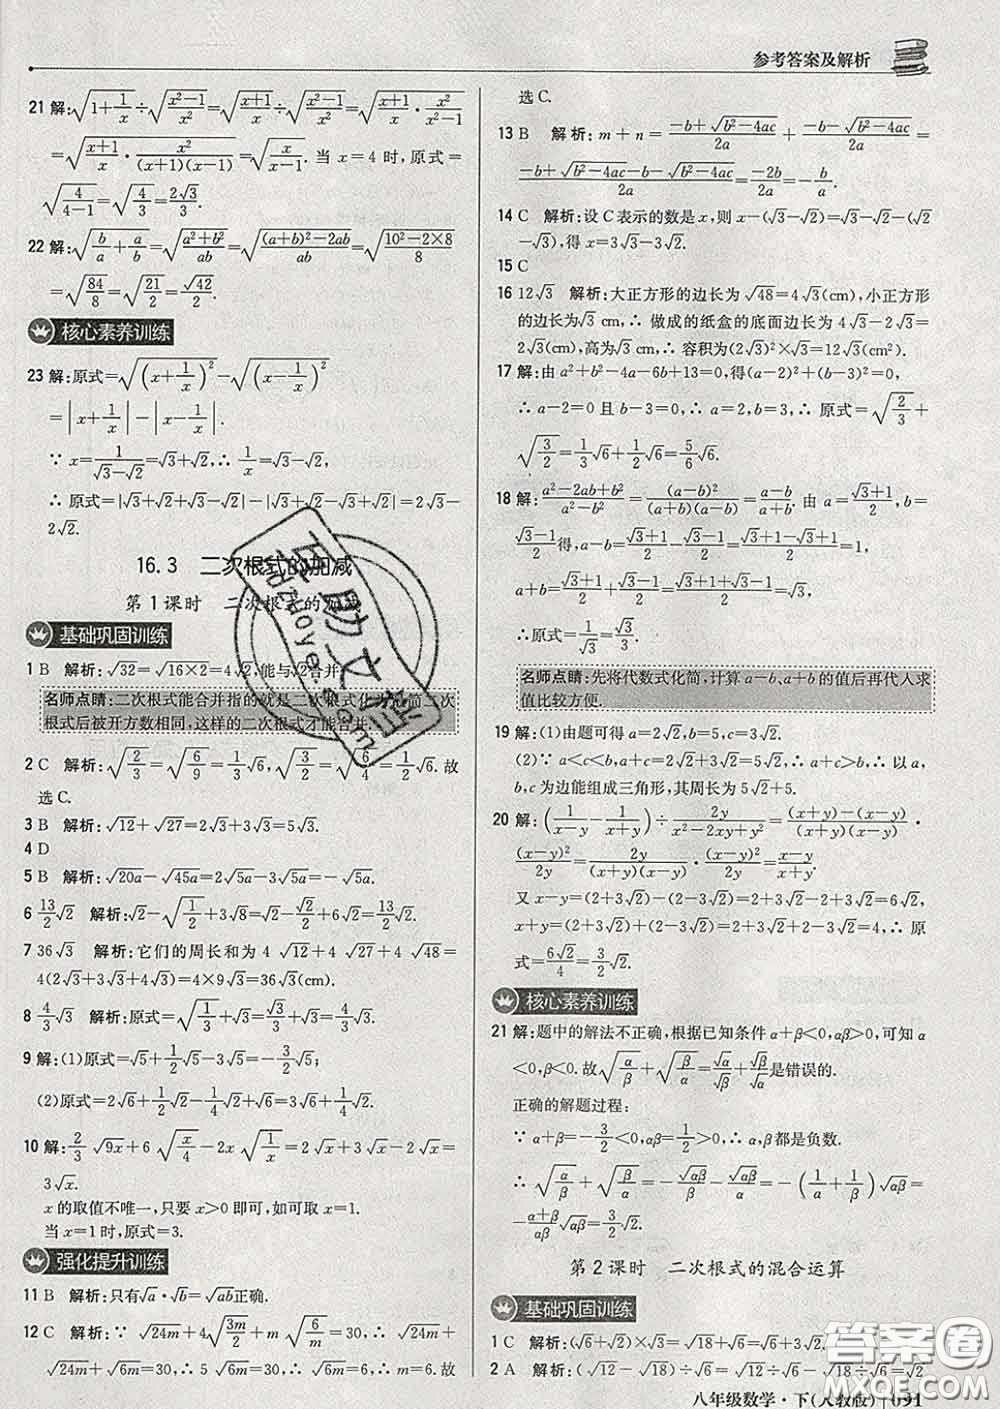 参考答案及解析
21 解:√(1+1/x)÷√((x²−1)/x²)=√((x+1)/x)÷√((x²−1)/x²)=√((x+1)/x·x²/(x²−1))
=√((x+1)/x·x²/((x+1)(x−1)))=√(x/(x−1)). 当 x=4 时,原式=
√(4/(4−1))=√(4/3)=2√3/3.
22 解:√(b/a+a/b)=√((a²+b²)/ab)=√(((a+b)²−2ab)/ab)=√((10²−2×8)/8)
=√(84/8)=√(21/2)=√42/2.
核心素养训练
23 解:原式=√((x+1/x)²)−√((x−1/x)²)
=|x+1/x|−|x−1/x|.
∵ x=1/(√3−√2)=√3+√2,∴ 1/x=√3−√2.
∴ 原式=|√3+√2+√3−√2|−|√3+√2−√3+√2|=2√3−
2√2.
16.3 二次根式的加减
第 1 课时 二次根式的加减
基础巩固训练
1 B 解析:√32=√(16×2)=4√2,能与√2合并.
名师点睛:二次根式能合并指的就是二次根式化最简二次
根式后被开方数相同,这样的二次根式才能合并.
2 C 解析:√(2/3)=√(6/9)=1/3√6,√(3/2)=√(6/4)=1/2√6. 故
选 C.
3 B 解析:√12+√27=2√3+3√3=5√3.
4 D
5 B 解析:√(20a)−√(45a)=2√(5a)−3√(5a)=−√(5a).
6 13/2√2 解析:√2−√(1/2)+3√8=√2−1/2√2+6√2=13/2√2.
7 36√3 解析:它们的周长和为 4√12+4√27+4√48=
4(2√3+3√3+4√3)=4×9√3=36√3(cm).
8 4/3√3 解析:原式=√(1/3)+√3=√3/3+√3=4/3√3.
9 解:(1)原式=√5+1/2√5−3√5=−3/2√5;
(2)原式=2√6+1/2√6−1/3√6−3√6=−5/6√6.
10 解:2/3√(9x)+6√(x/4)−2x√(1/x)=2√x+3√x−2√x=
3√x.
x 的取值不唯一,只要 x>0 即可,如可取 x=1.
当 x=1时,原式=3.
强化提升训练
11 B 解析:只有√a·√b=√(ab)正确.
12 C 解析:∵ √(24m)+4√(3m/2)+m√(6/m)=30,∴ √(24m)+
√(24m)+√(6m)=30,∴ 5√(6m)=30,∴ √(6m)=6,∴ m=6. 故
选 C.
13 B 解析:m+n=(−b+√(b²−4ac))/2a+(−b−√(b²−4ac))/2a=
(−b+√(b²−4ac)−b−√(b²−4ac))/2a=−2b/2a=−b/a.
14 C 解析:设 C 表示的数是 x,则 x−(√3−√2)=√3−√2−(√2
−√3),得 x=3√3−3√2.
15 C
16 12√3 解析:大正方形的边长为√48=4√3(cm),小正方形
的边长为√3 cm,∴ 做成的纸盒的底面边长为 4√3−2√3=
2√3(cm),高为√3 cm;∴ 容积为(2√3)²×√3=12√3(cm²).
17 解:由 a²+b²−4a−6b+13=0,得(a−2)²+(b−3)²=0,
∴ a−2=0 且 b−3=0,∴ a=2,b=3,∴ 原式=√(2/3)+
√(3/2)=1/3√6+1/2√6=5/6√6.
18 解:(a²−2ab+b²)/(a²−b²)=(a−b)²/((a+b)(a−b))=(a−b)/(a+b). 由 a=(√3+1)/2,b=
(√3−1)/2得,a−b=(√3+1)/2−(√3−1)/2=(√3+1−√3+1)/2=1,
a+b=(√3+1)/2+(√3−1)/2=(√3+1+√3−1)/2=√3,
∴原式=1/√3=√3/3.
名师点睛:先将代数式化简,计算 a−b,a+b 的值后再代入求
值比较方便.
19 解:(1)由题可得 a=2√2,b=5,c=3√2.
(2)∵ a<c<b,a+c=2√2+3√2=5√2>b,∴ 以 a,
b,c 为边能组成三角形,其周长为 5√2+5.
20 解:(1/(x−y)−1/(x+y))÷2y/(x²−2xy+y²)=((x+y)−(x−y))/((x+y)(x−y))
·(x−y)²/2y=2y/((x+y)(x−y))·(x−y)²/2y=(x−y)/(x+y).
又 x−y=(2+3√2)−(2−3√2)=2+3√2−2+3√2=6√2,
x+y=(2+3√2)+(2−3√2)=2+3√2+2−3√2=4,∴ 原
式=6√2/4=3/2√2.
核心素养训练
21 解:题中的解法不正确,根据已知条件 α+β<0,αβ>0,可知
α<0,β<0. 所以√(α/β)+√(β/α)=√α/√β+√β/√α是错误的.
正确的解题过程:
∵ α+β=−3/2<0,αβ=1/2>0,∴ α,β都是负数.
∴ √(α/β)+√(β/α)=−√(αβ)/β−√(αβ)/α=−(1/α+1/β)√(αβ)=
−(α+β)/αβ·√(αβ)=3/2√2.
第 2 课时 二次根式的混合运算
基础巩固训练
1 C 解析:(√6+√2)×√3=√18+√6=√6+3√2.
2 A 解析:(√12−√18)÷√6=√12÷√6−√18÷√6=√2
八年级数学·下(人教版) 091
百助文档
答案圈
MXQE.COM